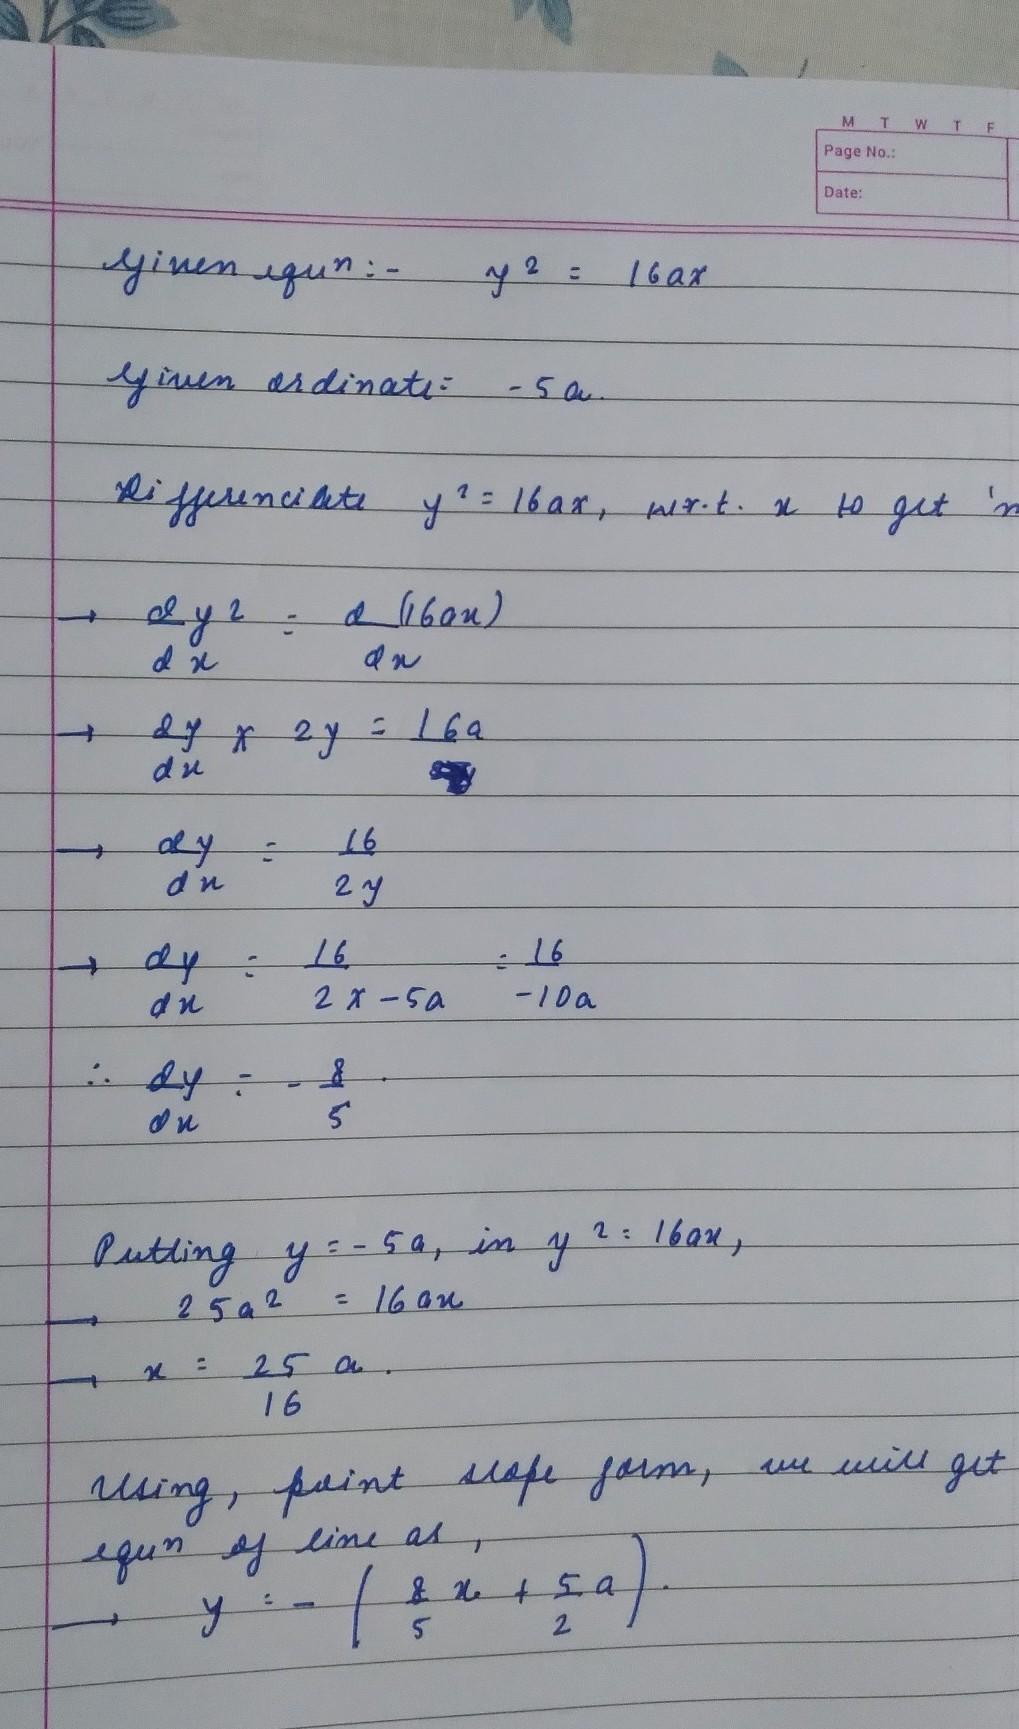 M T W T F
Page No.:
Date:
Given equn :- y² = 16ax
Given ordinate = -5a.
Differenciate y² = 16ax, w.r.t. x to get 'm
→ dy²/dx = d(16ax)/dx
→ dy/dx × 2y = 16a
→ dy/dx = 16/2y
→ dy/dx = 16/2 × -5a = 16/-10a
∴ dy/dx = - 8/5.
Putting y = -5a, in y² = 16ax,
→ 25a² = 16ax
→ x = 25/16 a.
Using, point slope form, we will get
equn of line as,
→ y = - (8/5 x + 5/2 a).